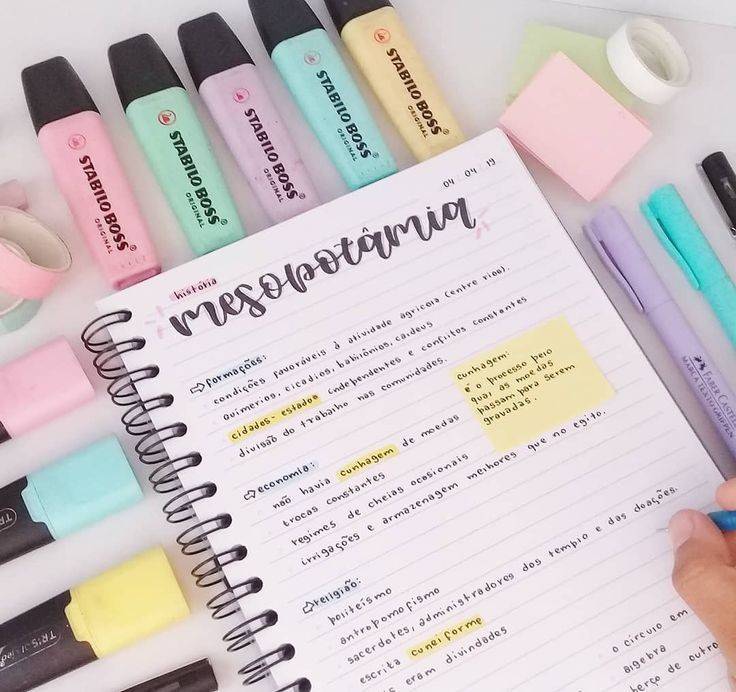 STABILO BOSS
ORIGINAL
STABILO BOSS
ORIGINAL
STABILO BOSS
ORIGINAL
STABILO BOSS
ORIGINAL
STABILO BOSS
ORIGINAL
04 04 19
história
mesopotâmia
formações:
condições favoráveis à atividade agrícola (entre rios).
Quimerios, cicadios, babilônios, caldeus
cidades-estados independentes e conflitos constantes
divisão do trabalho nas comunidades.
cunhagem:
é o processo pelo
qual as moedas
passam para serem
gravadas.
economia:
não havia cunhagem de moedas
trocas constantes
regimes de cheias ocasionais
irrigações e armazenagem melhores que no egito.
religião:
politeísmo
antropomofismo
sacerdotes, administradores dos templo e das doações.
escrita cuneiforme
eram divindades
o círculo em
álgebra
berço de outro
FABER-CASTELL
TRIS
TRIS